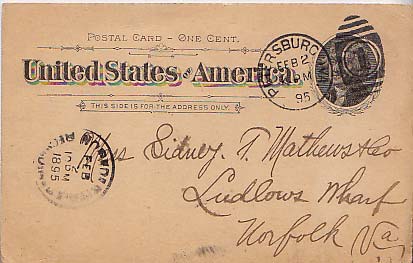 POSTAL CARD – ONE CENT.
United States of America.
THIS SIDE IS FOR THE ADDRESS ONLY.
PETERSBURG VA
FEB 2
PM
95
NORFOLK
FEB
2
1895
REC'D
Mess Sidney. T. Mathews & Co
Ludlows Wharf
Norfolk Va